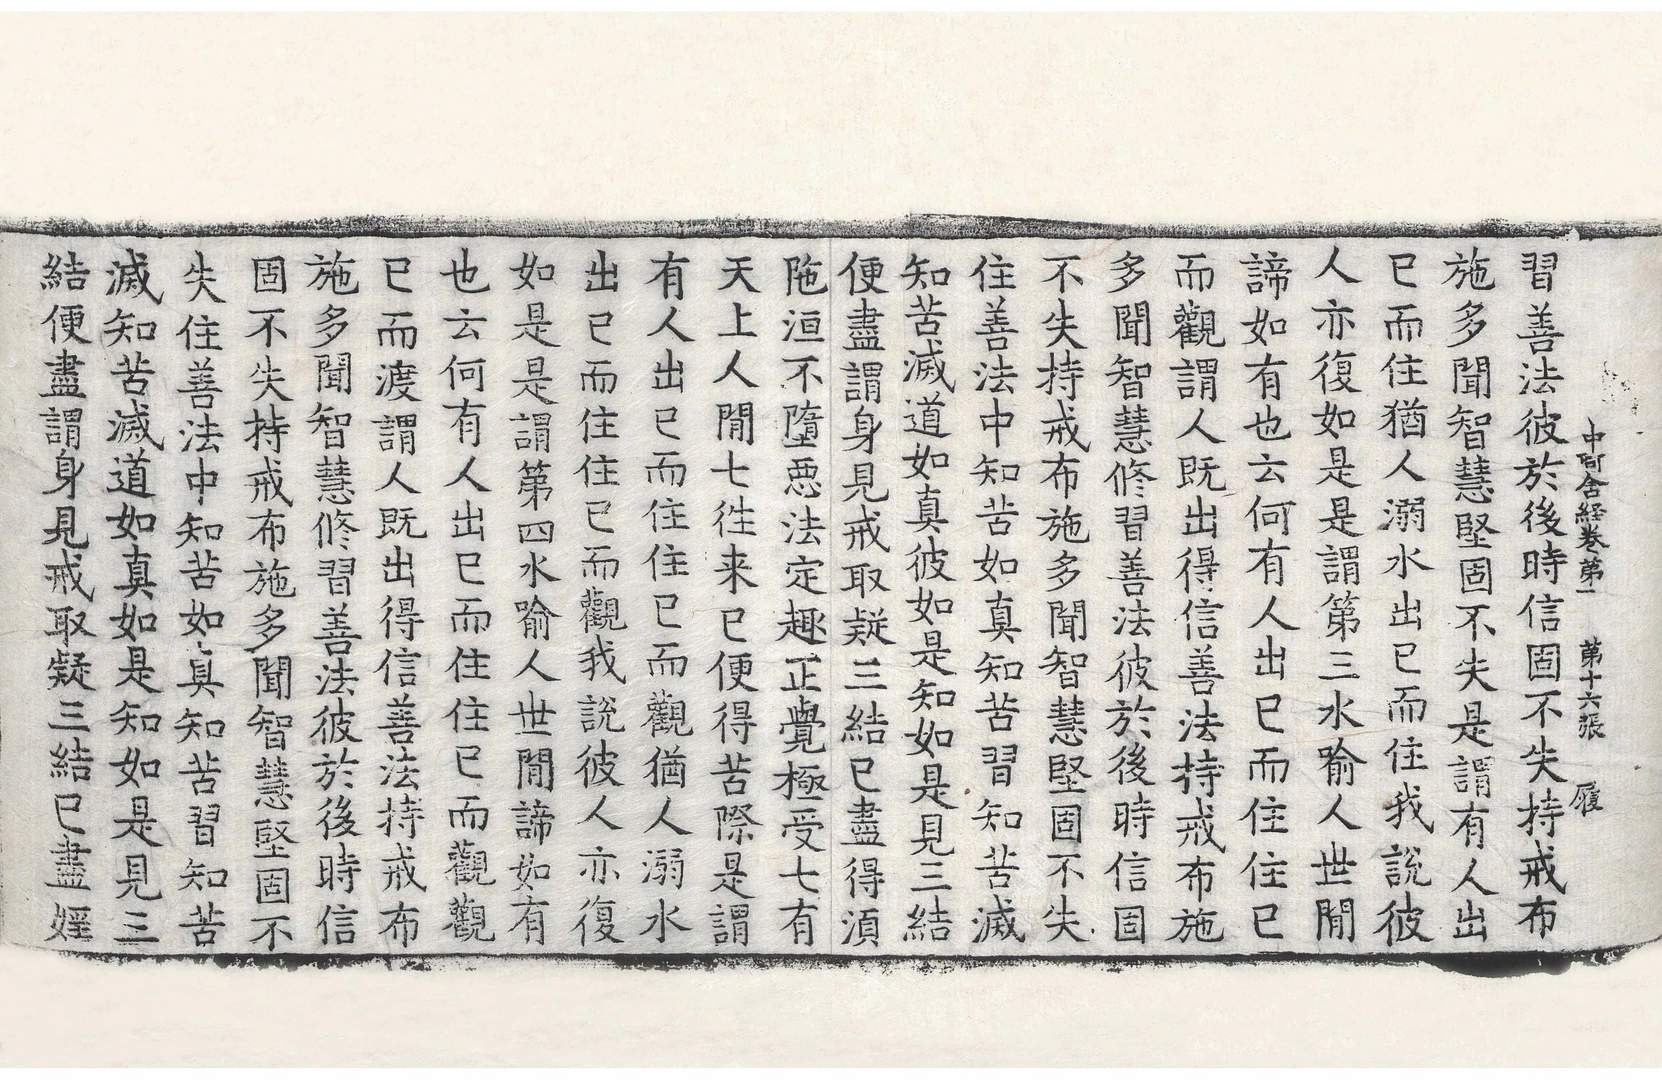 中阿含経卷第一　第十六張　履
習善法彼於後時信固不失持戒布
施多聞智慧堅固不失是謂有人出
已而住猶人溺水出已而住我說彼
人亦復如是是謂第三水喻人世閒
諦如有也云何有人出已而住住已
而觀謂人既出得信善法持戒布施
多聞智慧修習善法彼於後時信固
不失持戒布施多聞智慧堅固不失
住善法中知苦如真知苦習知苦滅
知苦滅道如真彼如是知如是見三結
便盡謂身見戒取疑三結已盡得須
陁洹不墮惡法定趣正覺極受七有
天上人閒七徃来已便得苦際是謂
有人出已而住住已而觀猶人溺水
出已而住住已而觀我說彼人亦復
如是是謂第四水喻人世閒諦如有
也云何有人出已而住住已而觀觀
已而渡謂人既出得信善法持戒布
施多聞智慧修習善法彼於後時信
固不失持戒布施多聞智慧堅固不
失住善法中知苦如真知苦習知苦
滅知苦滅道如真如是知如是見三
結便盡謂身見戒取疑三結已盡婬